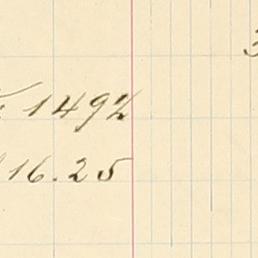 1492
16.25